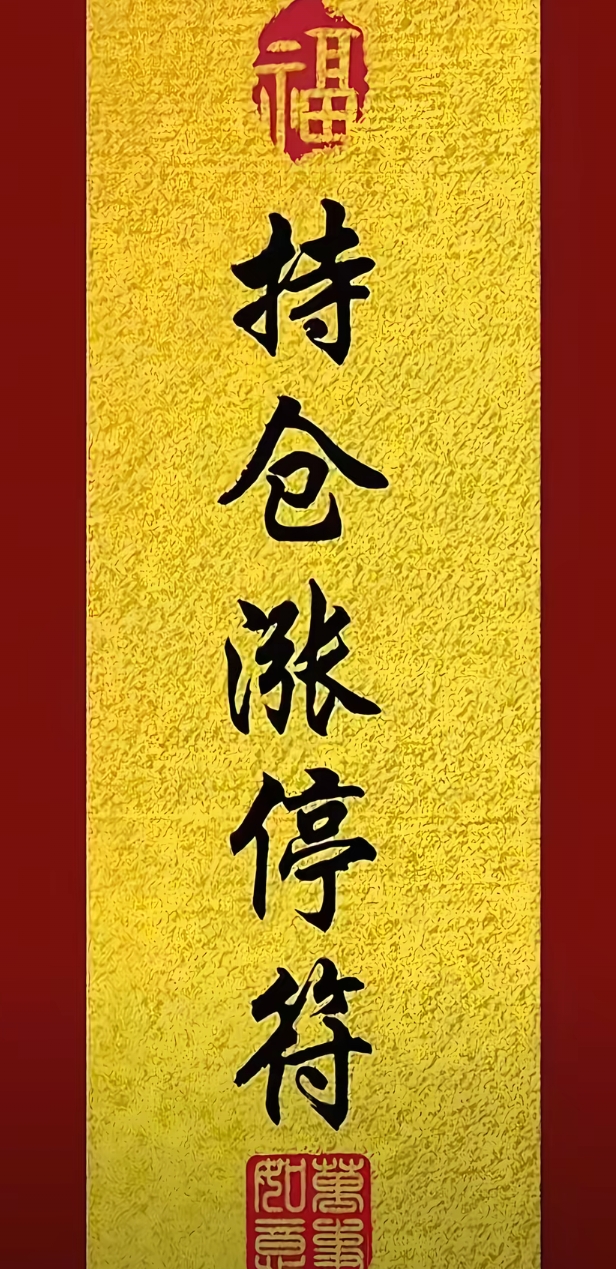 福
持仓涨停符
萬事如意